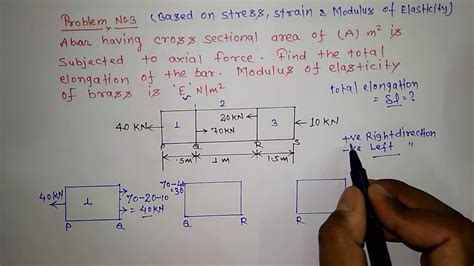 Problem No:3 (Based on stress, strain & Modulus of Elasticity)
A bar having cross sectional area of (A) m² is
Subjected to axial force. Find the total
elongation of the bar. Modulus of elasticity
of brass is 'E' N/m²
total elongation
= δl = ?
1 2 3
40 KN 20KN 70KN 10 KN
P Q R S
.5m 1m 1.5m
+ve Right direction
-ve Left "
40KN 1 70-20-10
= 40KN
P Q
70-40
=30
Q R
R